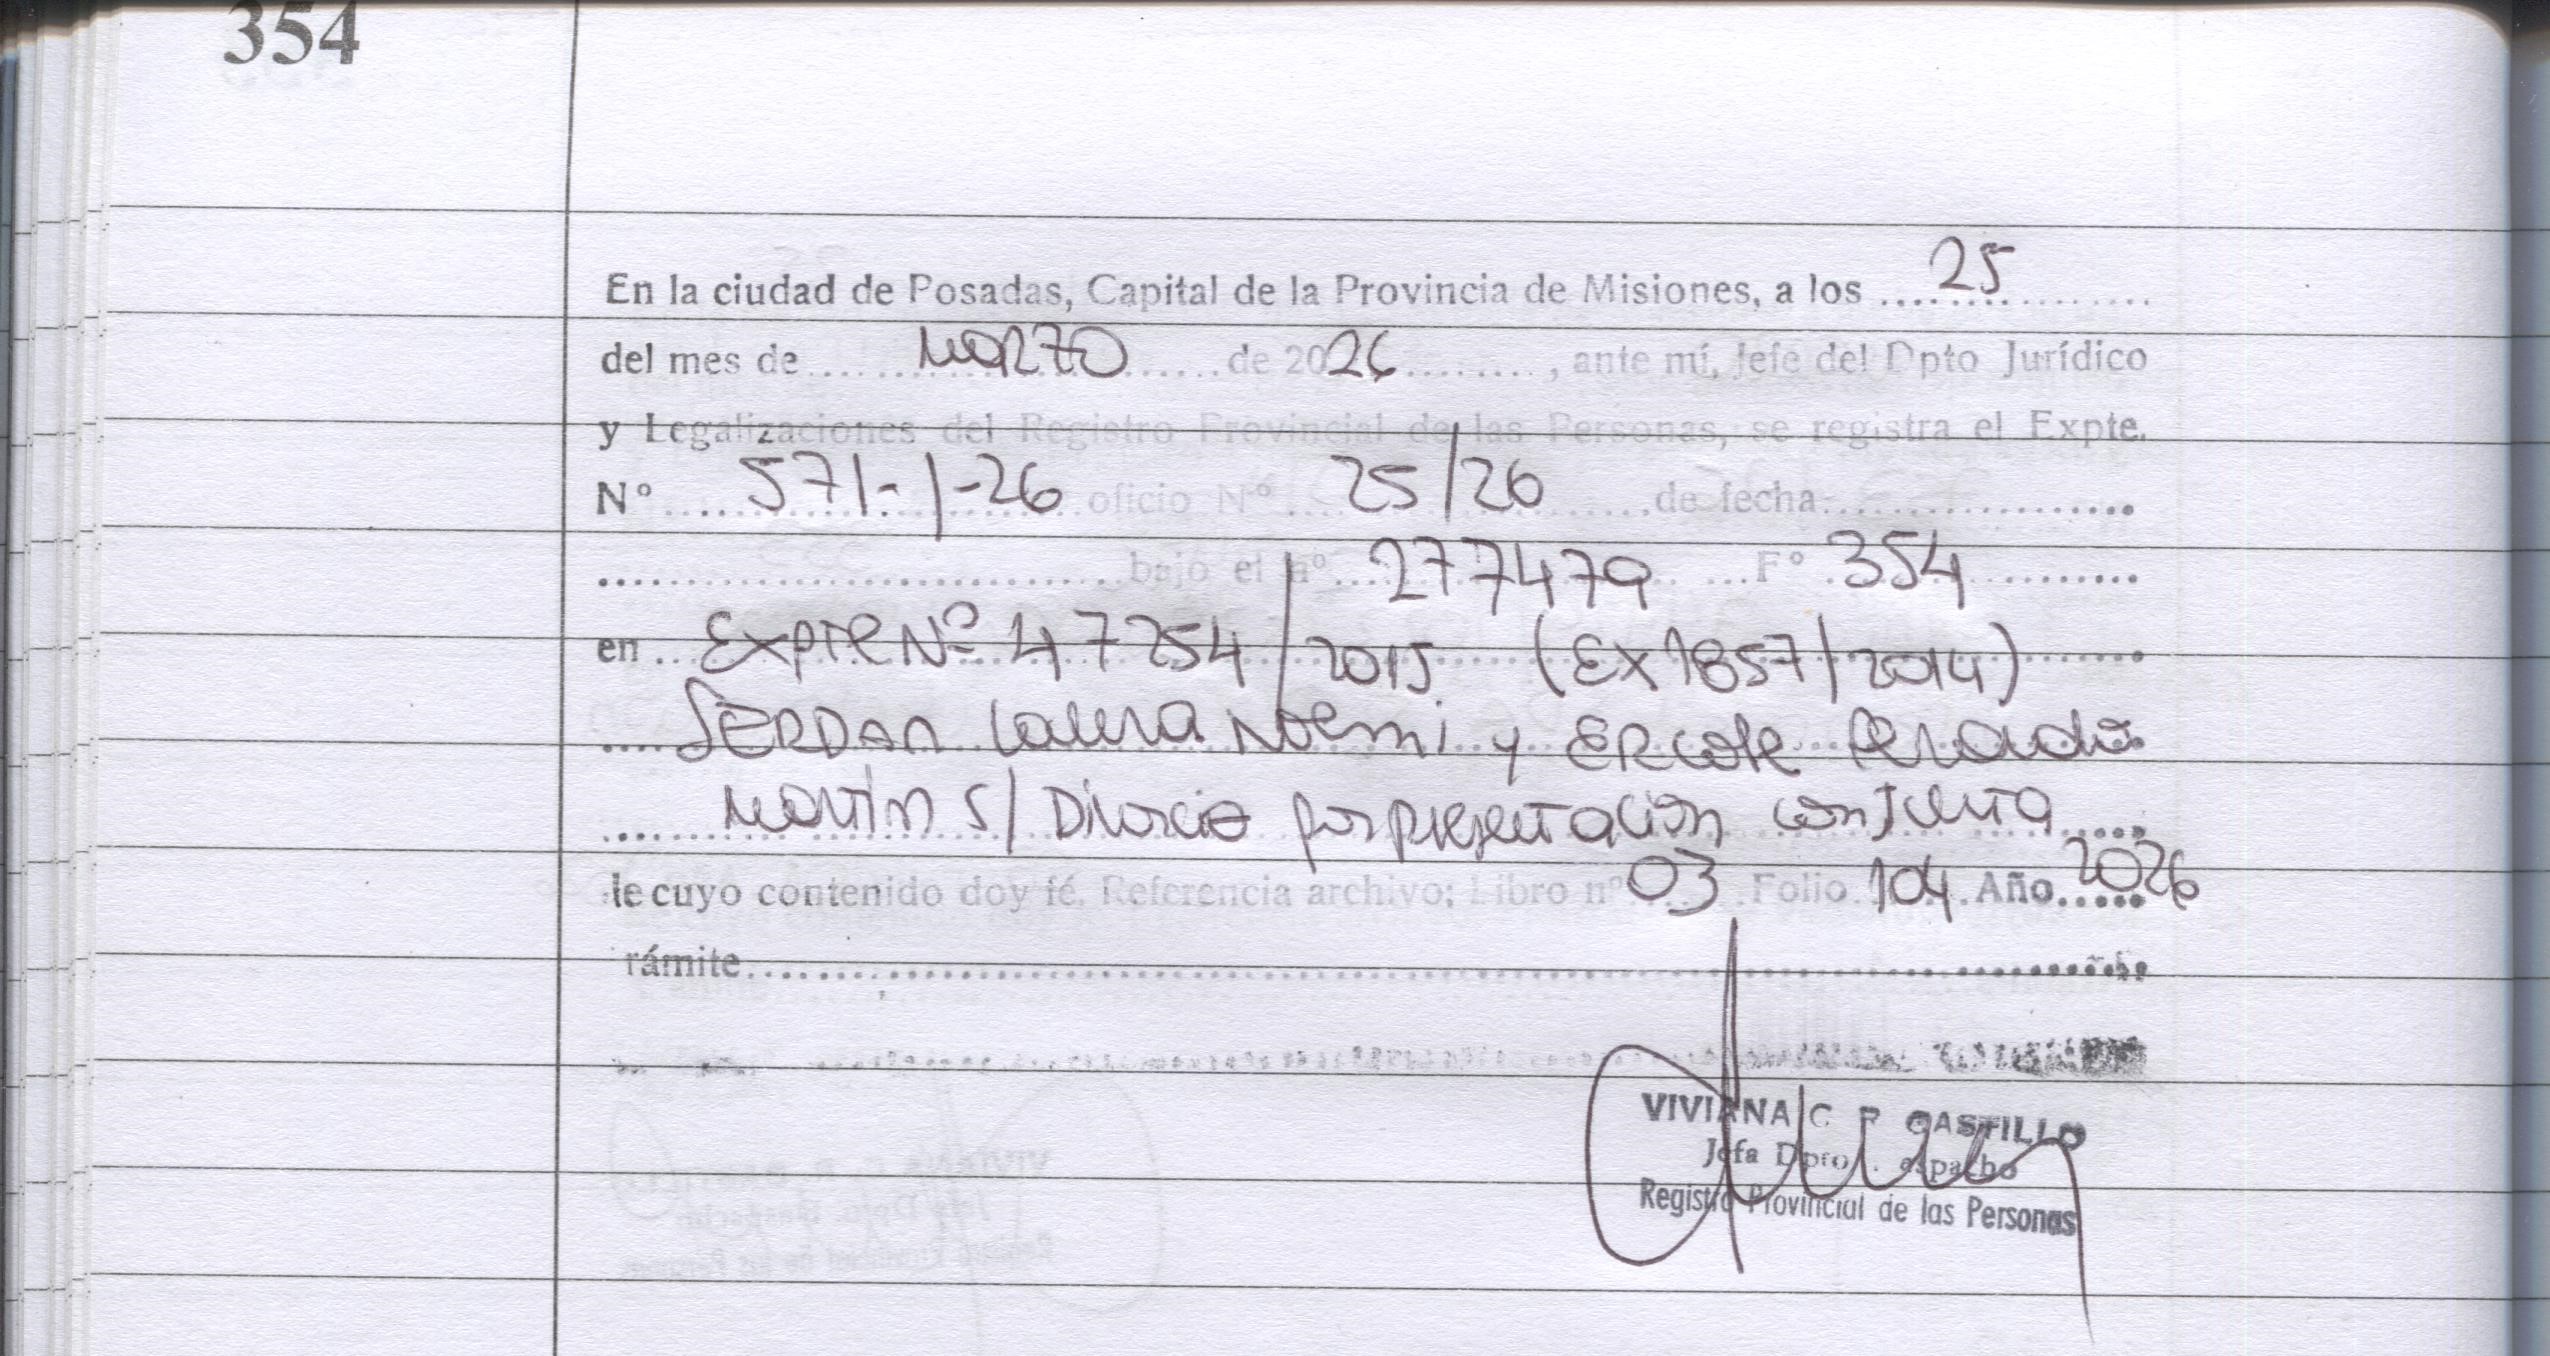 354
En la ciudad de Posadas, Capital de la Provincia de Misiones, a los .... 25 ....
del mes de .... Marzo .... de 2026 ........ , ante mí, Jefe del Dpto Jurídico
y Legalizaciones del Registro Provincial de las Personas, se registra el Expte.
Nº .... 571-1-26 .... oficio Nº .... 25/26 .... de fecha ....
.... bajo el nº .... 277479 .... Fº 354 ....
en .... Expte Nº 47254/2015 (Ex 1857/2014)
SERDAN Laura Noemi y ERcole
Martin S/ Divorcio por presentacion conjunta
le cuyo contenido doy fé. Referencia archivo; Libro nº 03 Folio 104 Año 2026
rámite....
VIVIANA C R CASTILLO
Jefa Dpto. espacho
Registro Provincial de las Personas